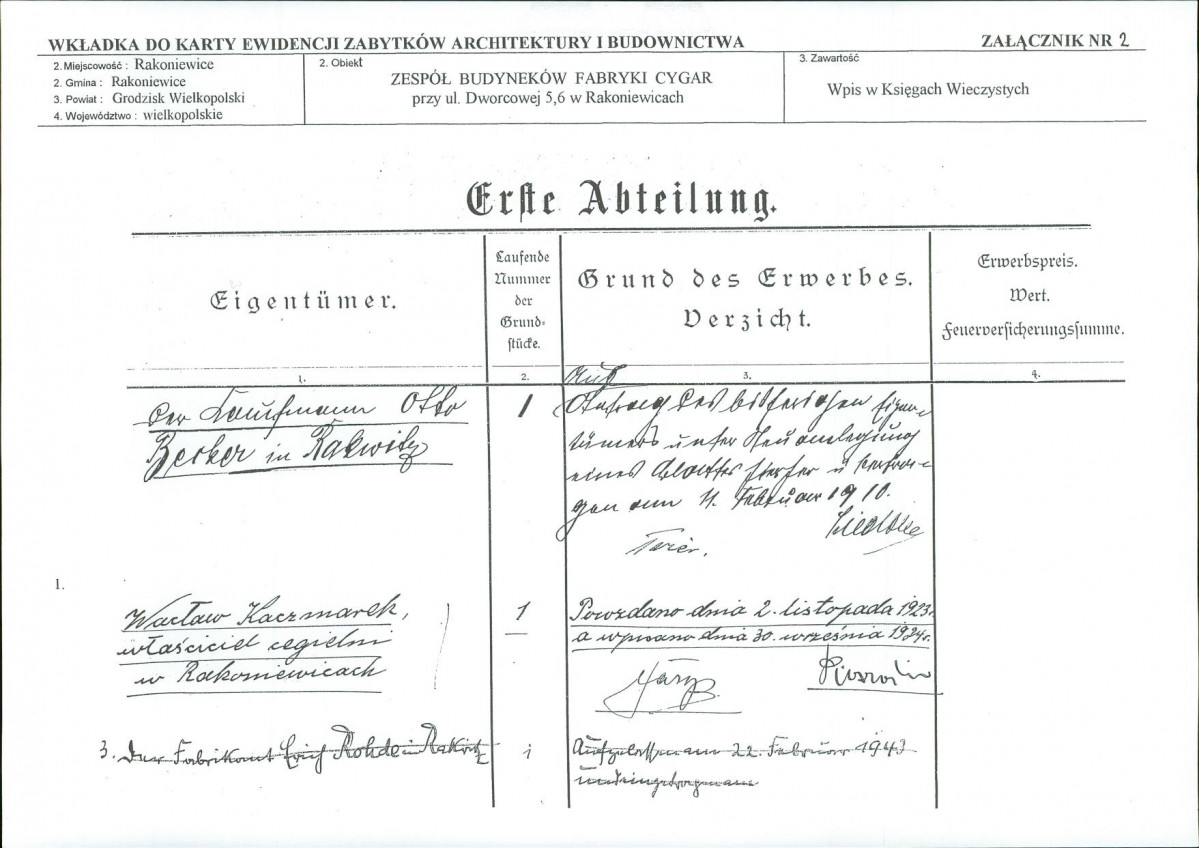 WKŁADKA DO KARTY EWIDENCJI ZABYTKÓW ARCHITEKTURY I BUDOWNICTWA
ZAŁĄCZNIK NR 2
2. Miejscowość : Rakoniewice
2. Gmina : Rakoniewice
3. Powiat : Grodzisk Wielkopolski
4. Województwo : wielkopolskie
2. Obiekt
ZESPÓŁ BUDYNEKÓW FABRYKI CYGAR
przy ul. Dworcowej 5,6 w Rakoniewicach
3. Zawartość
Wpis w Księgach Wieczystych
Erste Abteilung.
Eigentümer.
Laufende
Nummer
der
Grund-
stücke.
Grund des Erwerbes.
Verzicht.
Erwerbspreis.
Wert.
Feuerversicherungssumme.
1.
2.
3.
4.
Der Kaufmann Otto
Becker in Rakwitz
1
Auf
Antrag des bisherigen Eigen-
tümers unter Neuanlegung
eines Blattes hierher
gen am 11. Februar 1910.
1.
Wacław Kaczmarek,
właściciel cegielni
w Rakoniewicach
1
Powzdano dnia 2. listopada 1923.
a wpisano dnia 30. września 1924r.
3. Der Fabrikant Erich Rohde in Rakwitz
1
Aufgelassen am 22. Februar 1943
und eingetragen am